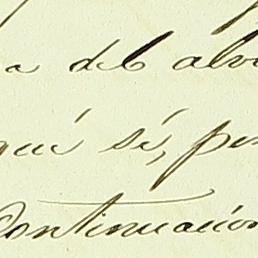 a del alv
que sé, per
Continuación